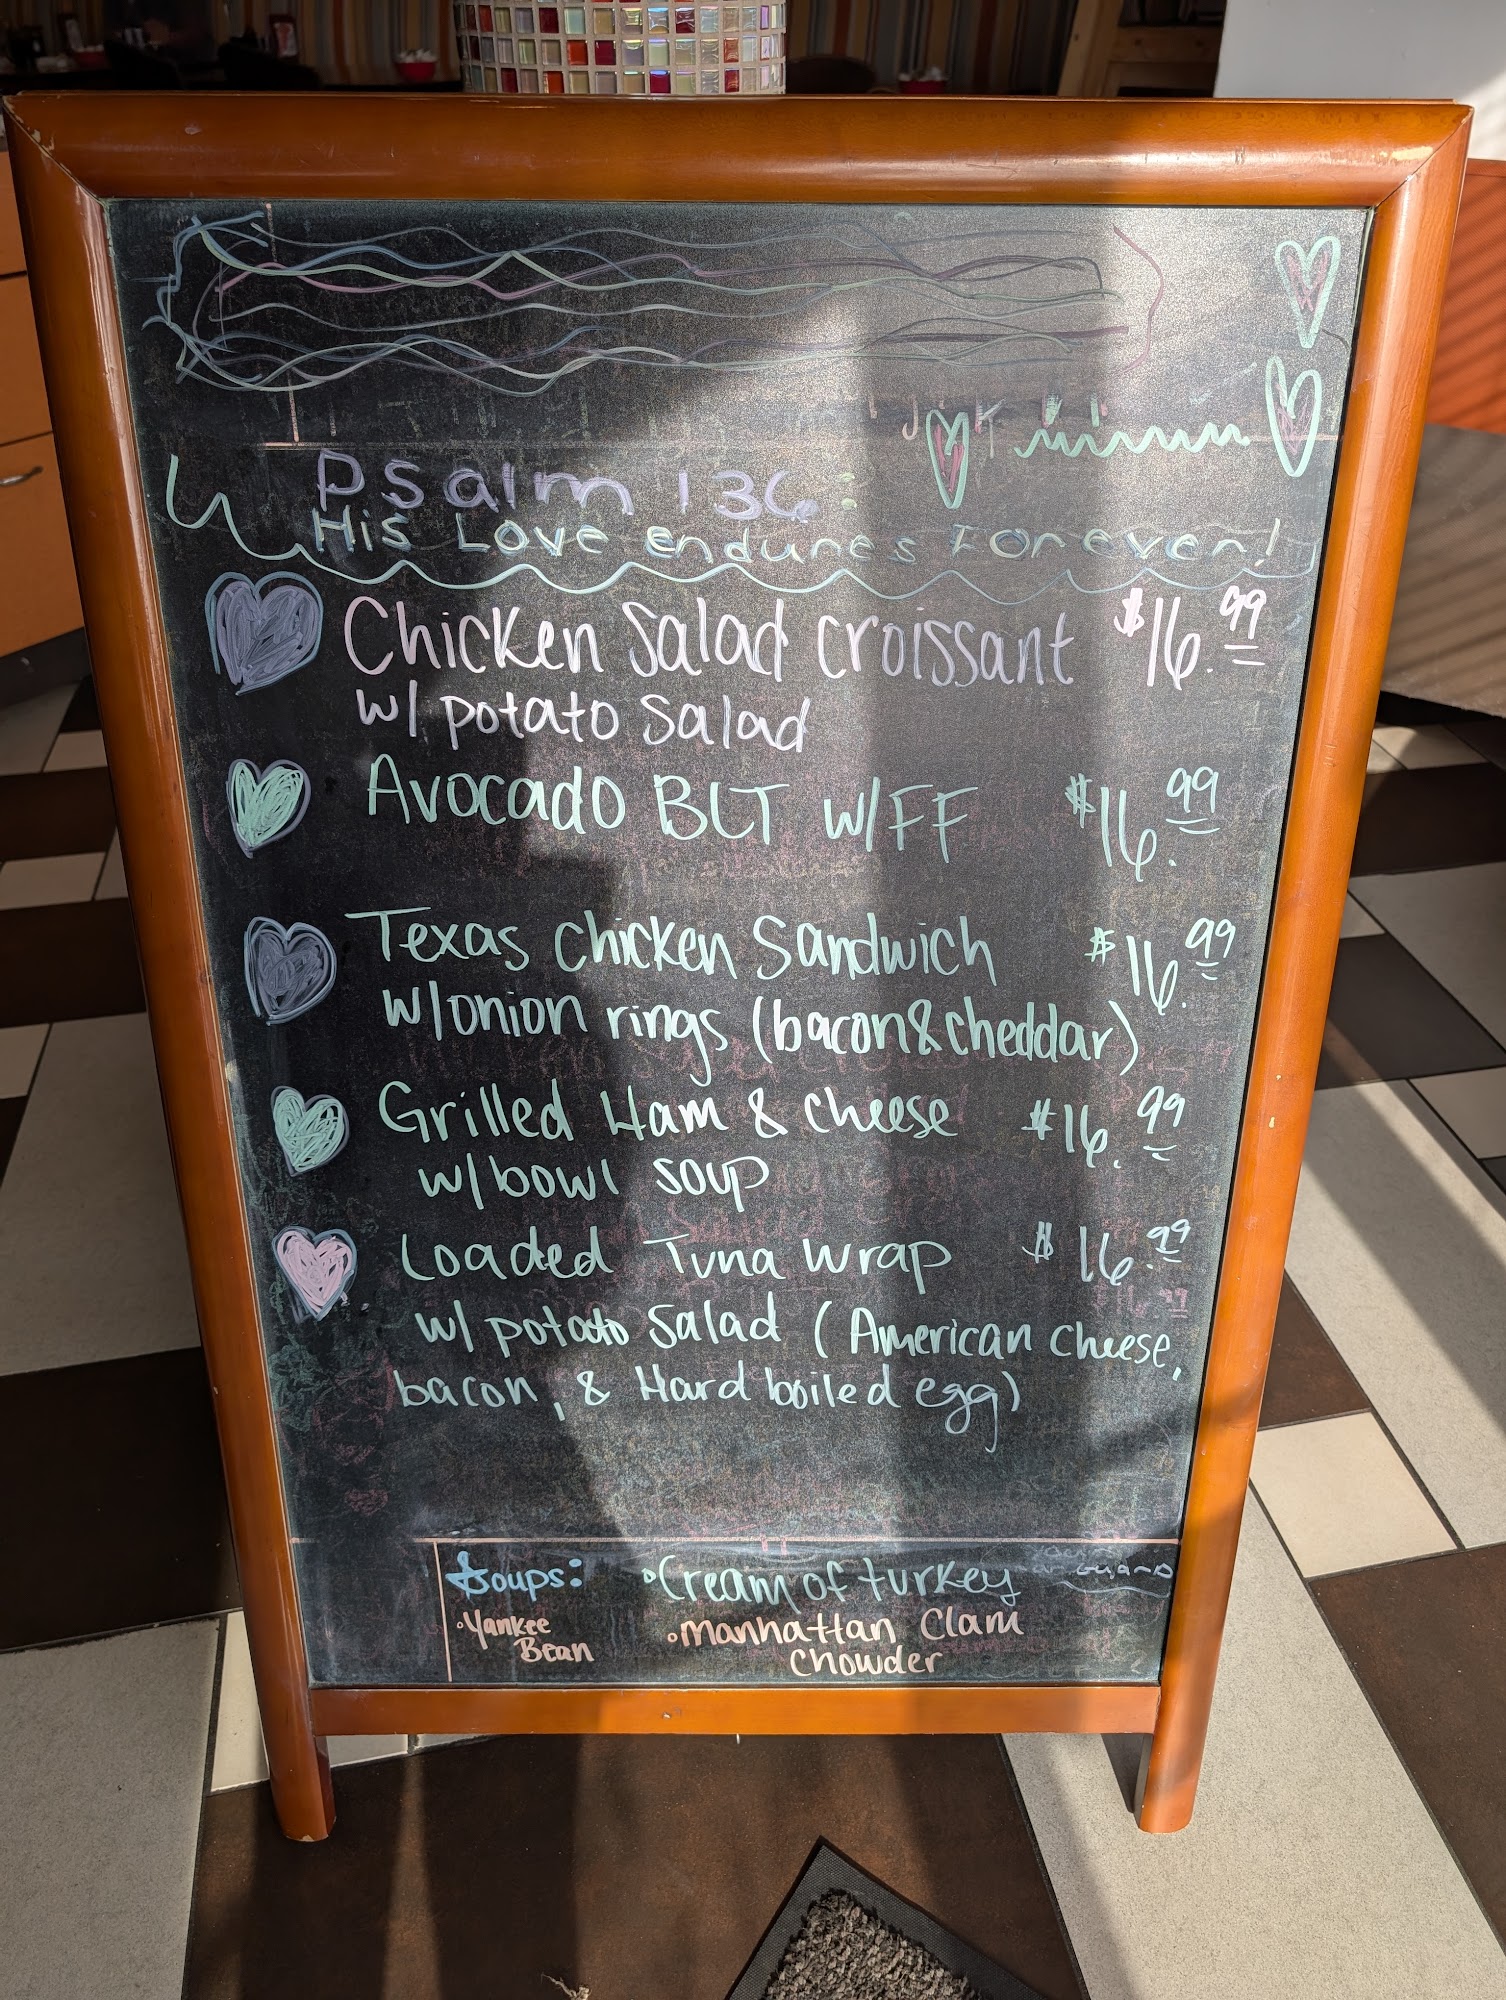 Psalm 136:
His Love endures Forever!
Chicken Salad Croissant $16.99
w/ potato Salad
Avocado BLT w/FF $16.99
Texas Chicken Sandwich $16.99
w/onion rings (bacon & cheddar)
Grilled Ham & cheese $16.99
w/bowl soup
Loaded Tuna wrap $16.99
w/ potato Salad (American cheese,
bacon, & Hard boiled egg)
Soups:
°Cream of turkey
°Yankee
Bean
°Manhattan Clam
Chowder